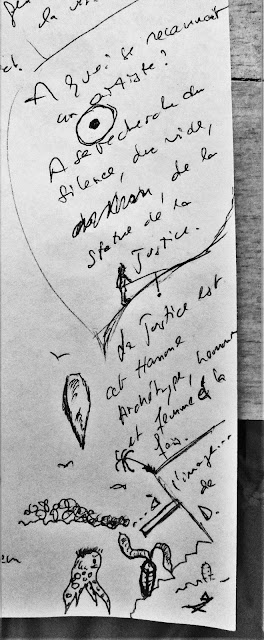 la
A quoi se reconnaît
un artiste?
A sa recherche du
silence, du vide,
de la
statue de la
Justice.
!
La Justice est
cet Homme
Archétype, homme
et femme à la
fois.
l'image...
de
D.